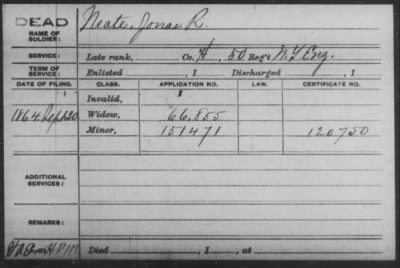 DEAD
NAME OF SOLDIER: Neate, Jonas R.
SERVICE: Late rank, Co. H, 50 Reg't N.Y. Eng.
TERM OF SERVICE: Enlisted , 1 Discharged , 1
DATE OF FILING. CLASS. APPLICATION NO. LAW. CERTIFICATE NO.
Invalid,
1864 Sept 20 Widow, 66.855
Minor, 151471 120750
ADDITIONAL SERVICES:
REMARKS:
Died , 1 , at